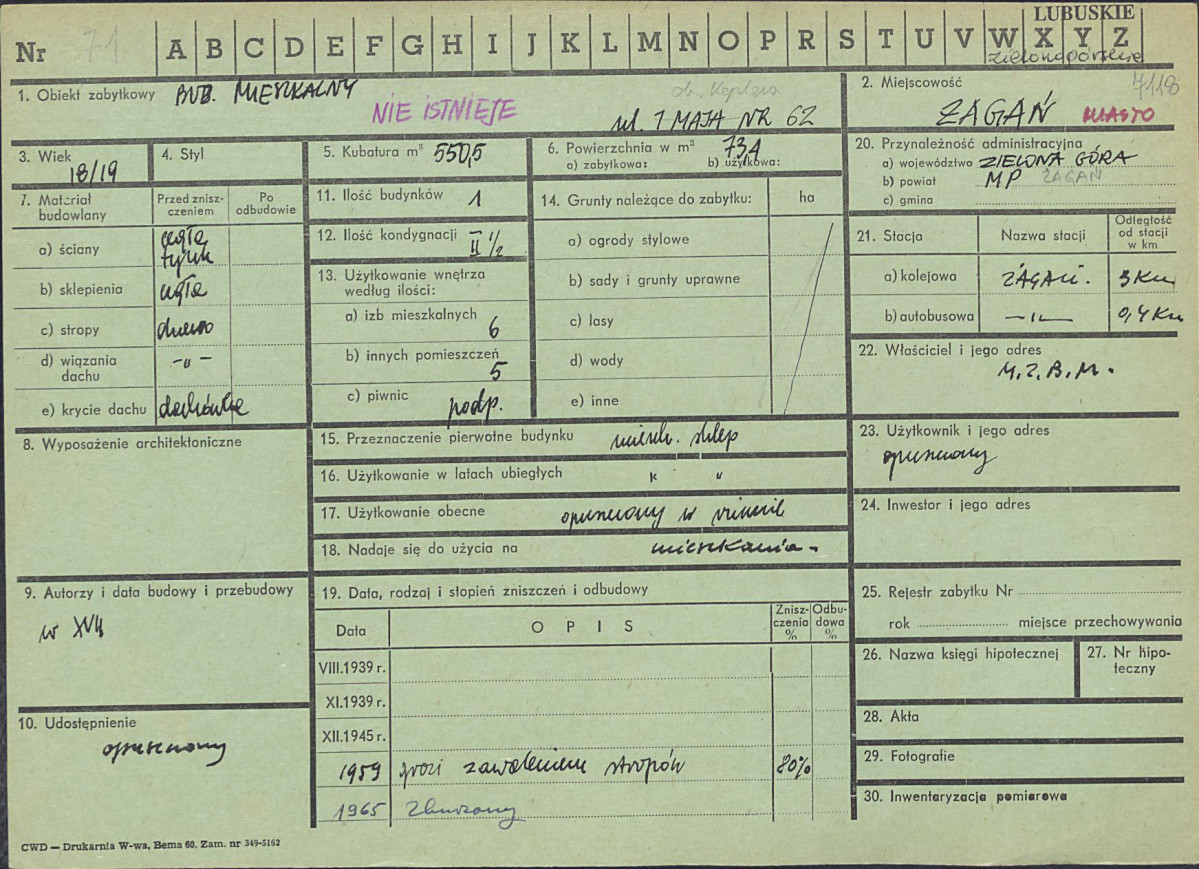 LUBUSKIE
Nr 71 A B C D E F G H I J K L M N O P R S T U V W X Y Z
zielonogórskie
1. Obiekt zabytkowy BUD. MIESZKALNY
NIE ISTNIEJE
ob. Keplera
ul. 1 MAJA NR 62
2. Miejscowość 7118
ŻAGAŃ MIASTO
3. Wiek
18/19
4. Styl
5. Kubatura m³ 550,5
6. Powierzchnia w m² 734
a) zabytkowa: b) użytkowa:
20. Przynależność administracyjna
a) województwo ZIELONA GÓRA
b) powiat MP ŻAGAŃ
c) gmina
7. Materiał budowlany
Przed zniszczeniem
Po odbudowie
a) ściany cegła
tynk
b) sklepienia cegła
c) stropy drewno
d) wiązania dachu -"-
e) krycie dachu dachówka
11. Ilość budynków 1
12. Ilość kondygnacji II 1/2
13. Użytkowanie wnętrza
według ilości:
a) izb mieszkalnych
6
b) innych pomieszczeń
5
c) piwnic podp.
14. Grunty należące do zabytku: ha
a) ogrody stylowe
b) sady i grunty uprawne
c) lasy
d) wody
e) inne
21. Stacja Nazwa stacji Odległość od stacji w km
a) kolejowa ŻAGAŃ. 3 Km
b) autobusowa -"- 0,4 Km
22. Właściciel i jego adres
M.Z.B.M.
8. Wyposażenie architektoniczne
15. Przeznaczenie pierwotne budynku mieszk. sklep
16. Użytkowanie w latach ubiegłych " "
17. Użytkowanie obecne opuszczony w ruinie
18. Nadaje się do użycia na mieszkania-
23. Użytkownik i jego adres
opuszczony
24. Inwestor i jego adres
9. Autorzy i data budowy i przebudowy
w XVII
10. Udostępnienie
opuszczony
19. Data, rodzaj i stopień zniszczeń i odbudowy
Data OPIS Zniszczenia % Odbudowa %
VIII.1939 r.
XI.1939 r.
XII.1945 r.
1959 grozi zawaleniem stropów 80%
1965 Zburzony
25. Rejestr zabytku Nr
rok miejsce przechowywania
26. Nazwa księgi hipotecznej
27. Nr hipoteczny
28. Akta
29. Fotografie
30. Inwentaryzacja pomiarowa
CWD — Drukarnia W-wa, Bema 60. Zam. nr 349-5162